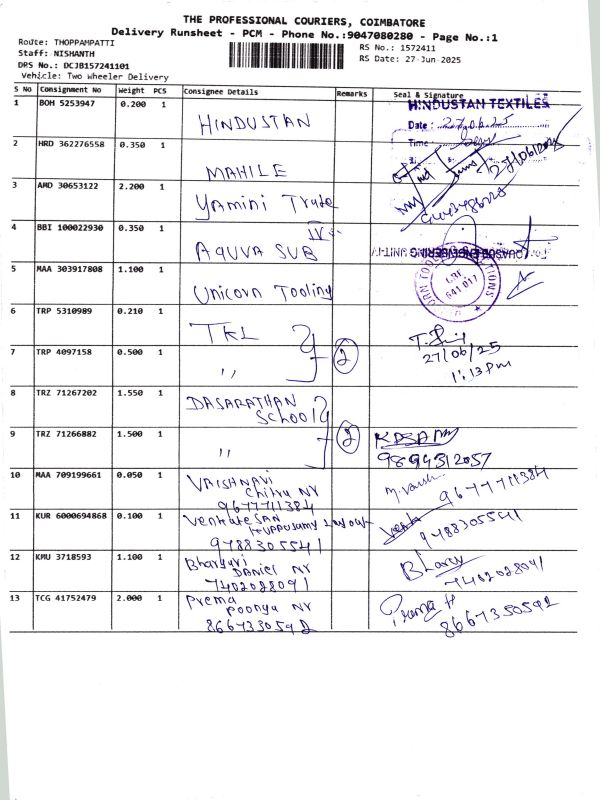 THE PROFESSIONAL COURIERS, COIMBATORE
Delivery Runsheet - PCM - Phone No.:9047080280 - Page No.:1
Route: THOPPAMPATTI
Staff: NISHANTH
DRS No.: DCJB157241101
Vehicle: Two Wheeler Delivery
RS No.: 1572411
RS Date: 27-Jun-2025
S No Consignment No Weight PCS Consignee Details Remarks Seal & Signature
1 BOH 5253947 0.200 1 HINDUSTAN
HINDUSTAN TEXTILES
Date : 27.06.25
Time :
2 HRD 362276558 0.350 1 MAHILE
27/06/2025
3 AMD 30653122 2.200 1 Yamini Trade
4 BBI 100022930 0.350 1 AQUVA SUB IV
5 MAA 303917808 1.100 1 Unicorn Tooling
6 TRP 5310989 0.210 1 TKL
7 TRP 4097158 0.500 1 ,, 2
27/06/25
1:13 pm
8 TRZ 71267202 1.550 1 DASARATHAN
SCHOOL
9 TRZ 71266882 1.500 1 ,, 2
9894312057
10 MAA 709199661 0.050 1 VAISHNAVI
Chitru NY
9677711384 9677711384
11 KUR 6000694868 0.100 1 VenkateSAN
Kuppusamy Layout
9788305541 9788305541
12 KMU 3718593 1.100 1 Bhargavi
DANIEL NY
7402028091 7402028091
13 TCG 41752479 2.000 1 Prema
Poonga NY
8667330592 8667330592